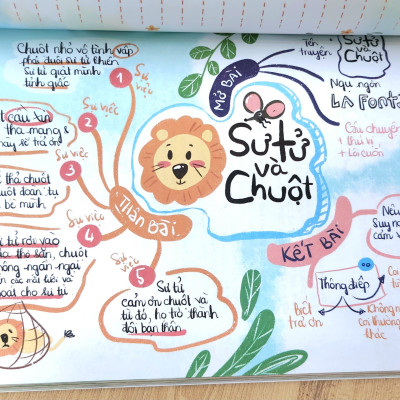 Chuột nhỏ vô tình vấp
phải đuôi sư tử khiến
Sư tử giật mình
tỉnh giấc
1
Sự việc
cầu xin
tha mạng &
sẽ trả ơn
2
Sự việc
thả chuột
chuột đoàn tụ
bé mình
3
Sự việc
tử rơi vào
thợ săn, chuột
không ngần ngại
cho sư tử
4
Sự việc
5
Sự việc
Sư tử
cảm ơn chuột và
từ đó, họ trở thành
đôi bạn thân
Thân Bài
Sư tử
và
Chuột
MỞ BÀI
Tên
truyện
Sư tử
và
Chuột
Ngụ ngôn
LA FONTA
Câu chuyện
+ thú vị
+ lôi cuốn
KẾT BÀI
Nêu
suy ng
cảm
Thông điệp
biết
trả ơn
Không
coi thường
khác